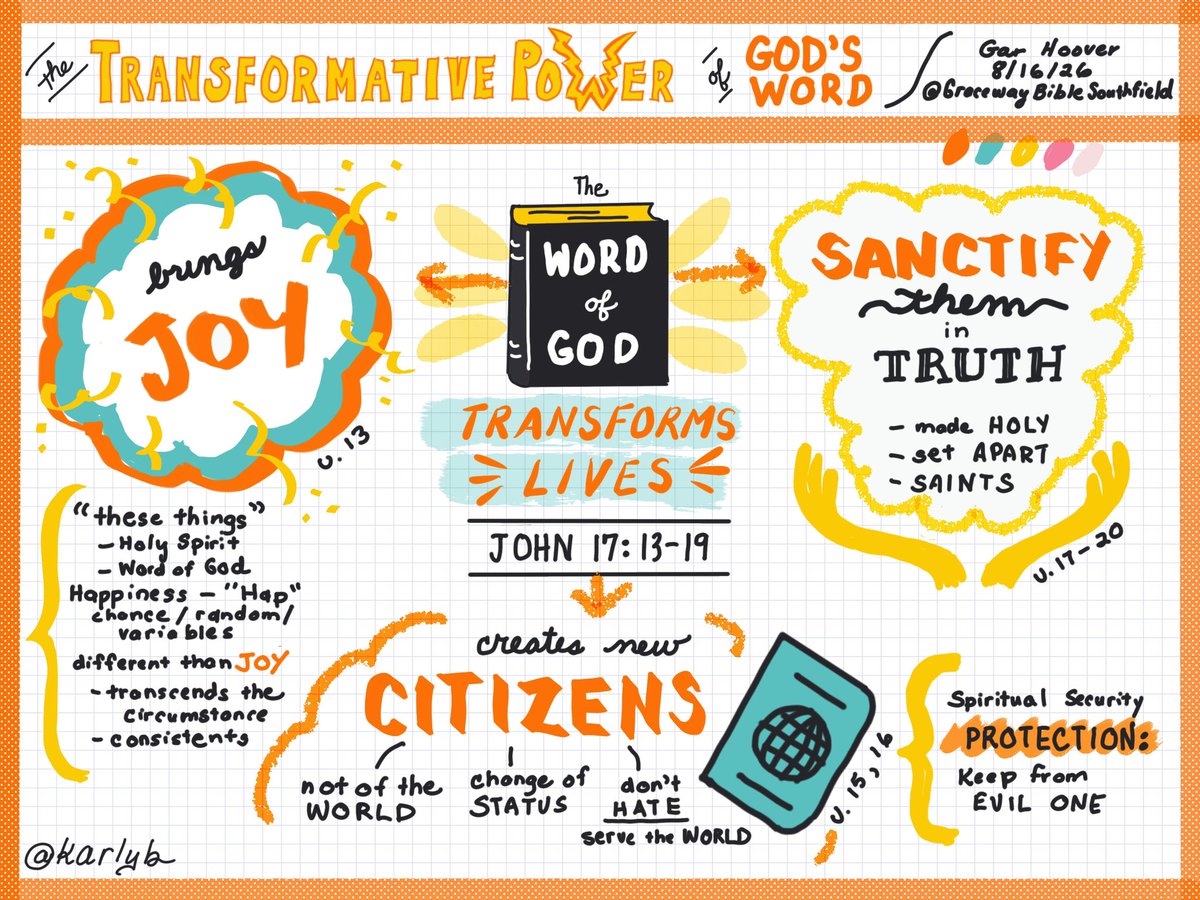 the TRANSFORMATIVE POWER of GOD'S WORD
Gar Hoover
8/16/26
@Graceway Bible Southfield
brings
JOY
v. 13
"these things"
- Holy Spirit
- Word of God
Happiness - "Hap"
chance / random /
variables
different than JOY
- transcends the
circumstance
- consistents
The
WORD
of
GOD
TRANSFORMS
LIVES
JOHN 17: 13-19
SANCTIFY
them
in
TRUTH
- made HOLY
- set APART
- SAINTS
v. 17-20
creates new
CITIZENS
not of the
WORLD
change of
STATUS
don't
HATE
serve the WORLD
v. 15, 16
Spiritual Security
PROTECTION:
Keep from
EVIL ONE
@karlyb